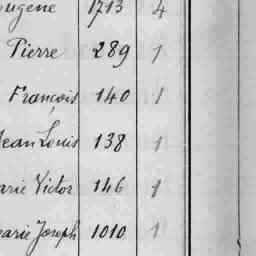 Eugène 1713 4
Pierre 289 1
François 140 1
Jean Louis 138 1
arie Victor 146 1
arie Joseph 1010 1